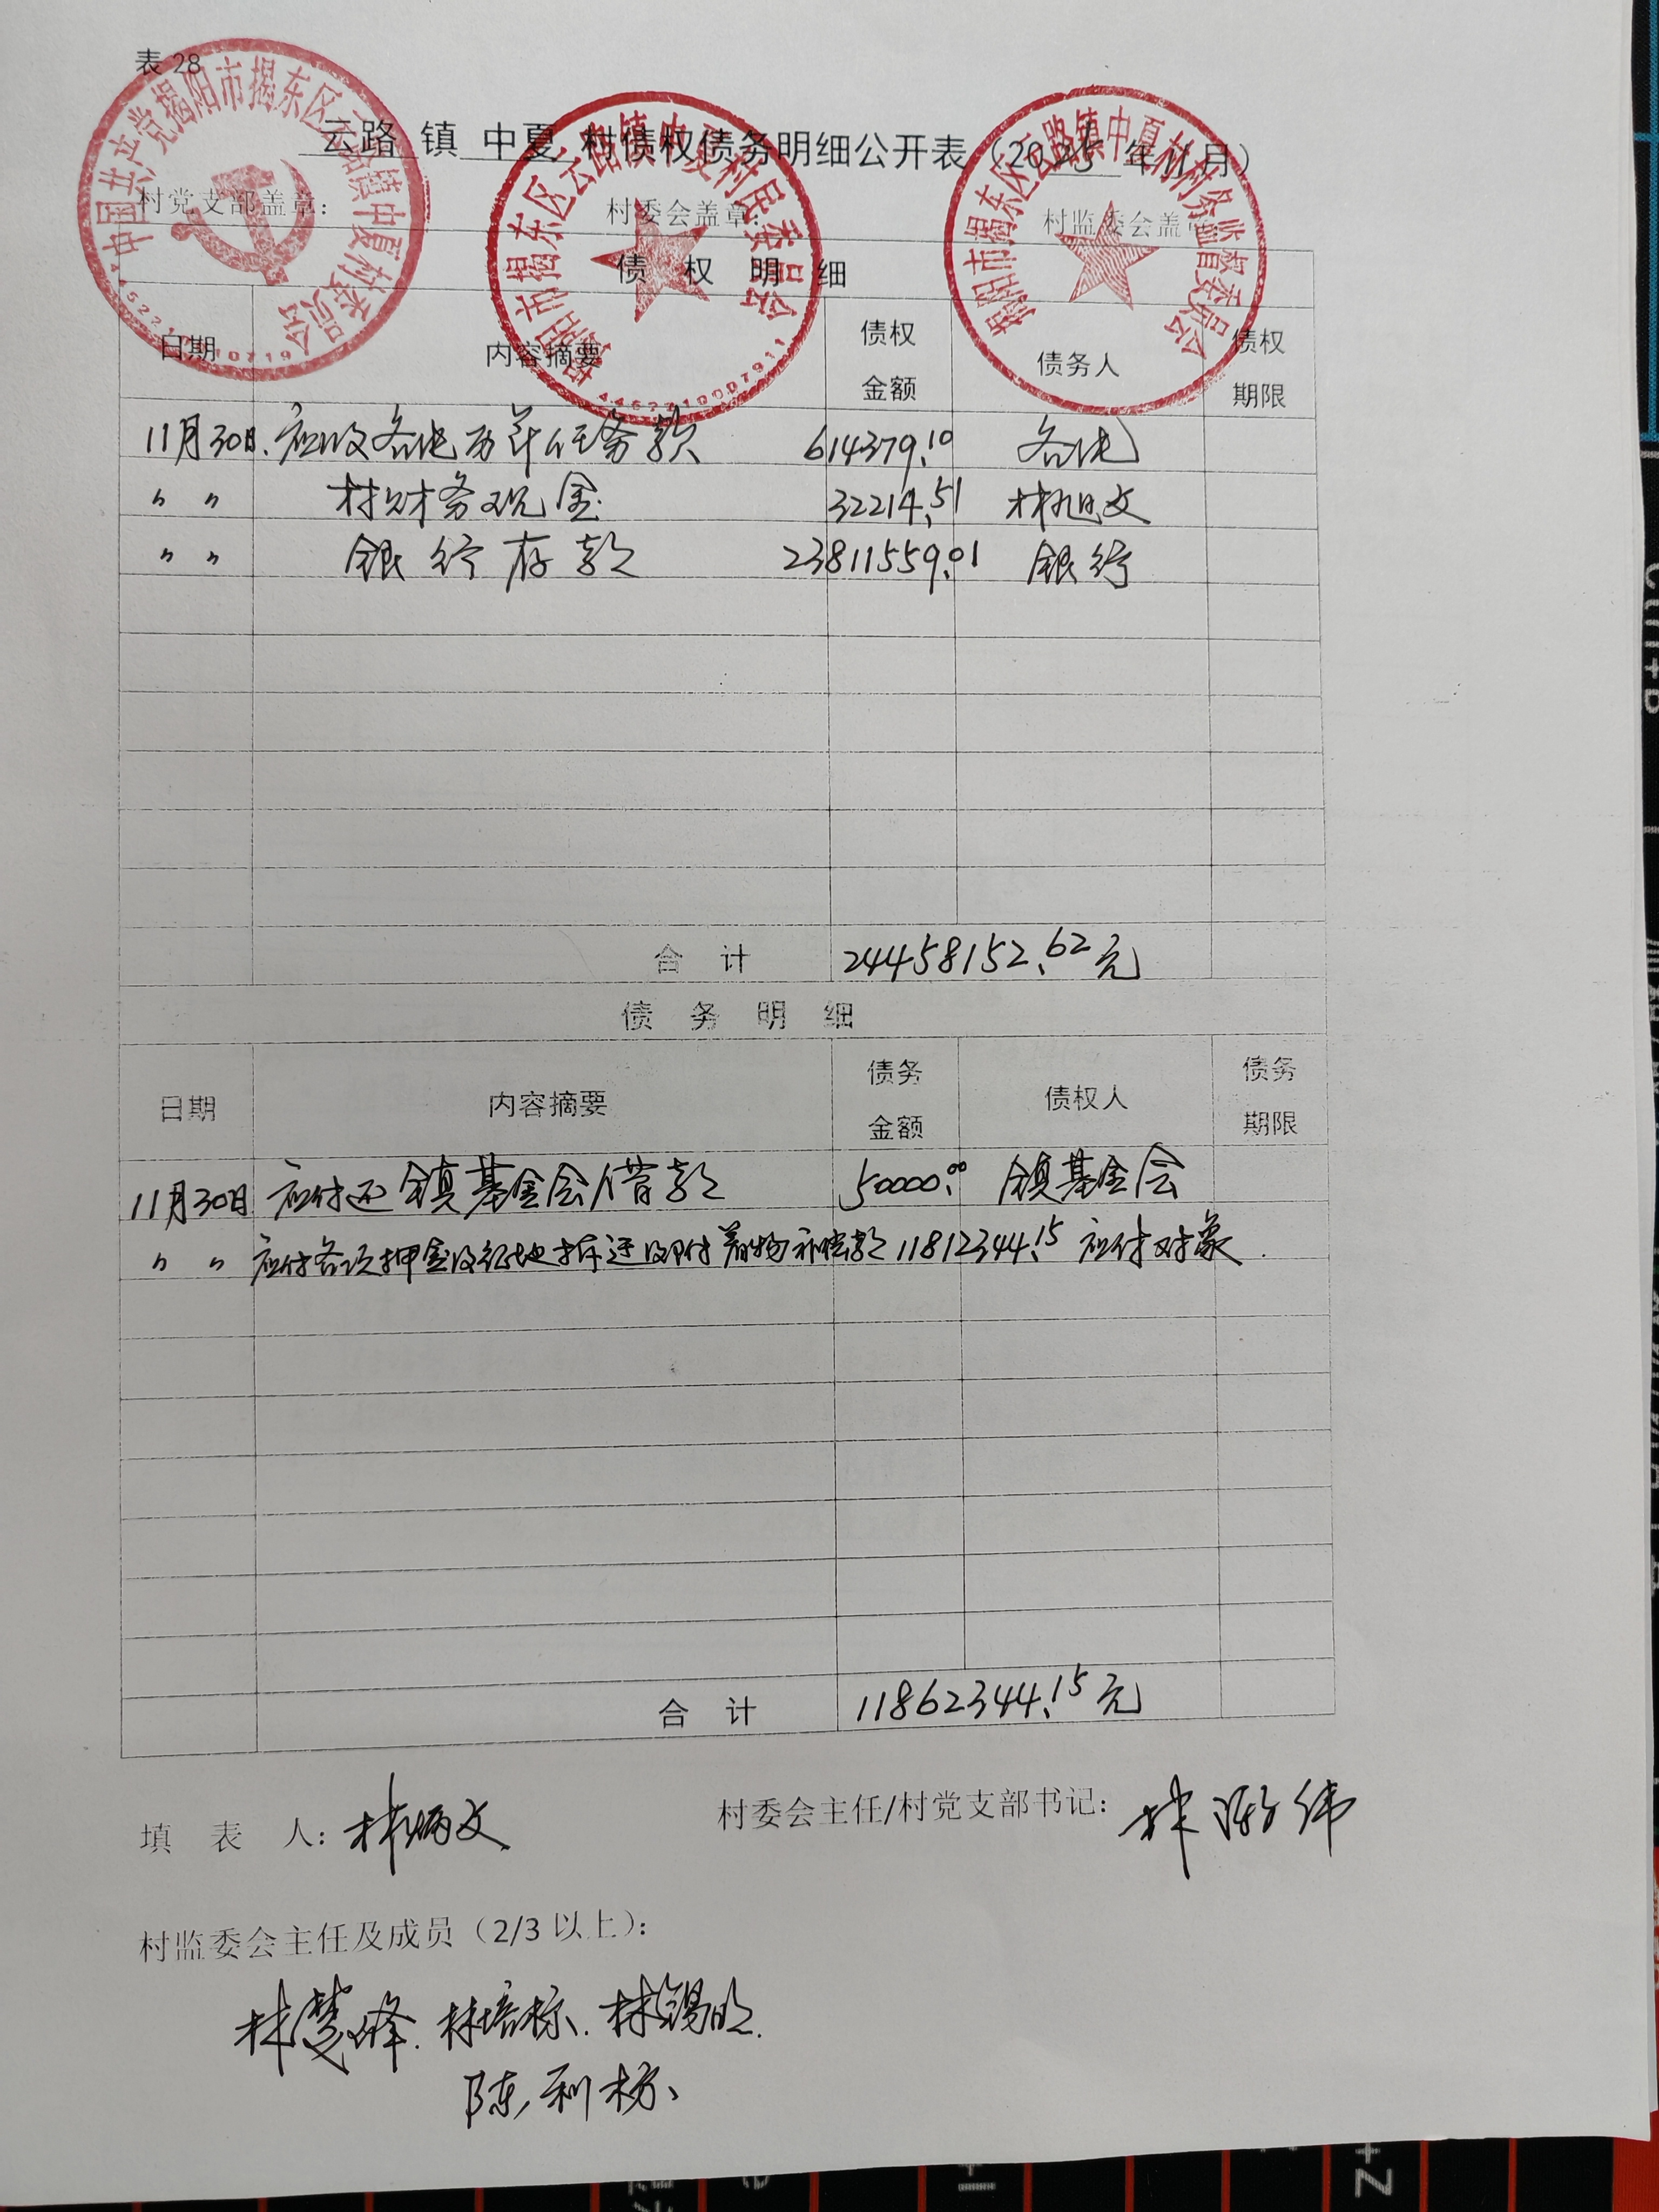 表 28
云路 镇 中夏 村债权债务明细公开表（2025 年 11 月）
村党支部盖章： 村委会盖章： 村监委会盖章
中国共产党揭阳市揭东区云路镇中夏村委员会
揭阳市揭东区云路镇中夏村村民委员会
4452210007911
揭阳市揭东区云路镇中夏村村务监督委员会
债 权 明 细
日期 内容摘要 债权金额 债务人 债权期限
11月30日 应收各社历年任务款 614379.10 各社
〃 〃 村财务现金 32214.51 林旭文
〃 〃 银行存款 23811559.01 银行
合 计 24458152.62元
债 务 明 细
日期 内容摘要 债务金额 债权人 债务期限
11月30日 应付还镇基金会借款 50000.00 镇基金会
〃 〃 应付各项押金及征地拆迁及附着物补偿款 11812344.15 应付对象
合 计 11862344.15元
填 表 人：林炳文 村委会主任/村党支部书记：林 伟
村监委会主任及成员（2/3 以上）：
林楚峰 林培标 林锡明
陈利